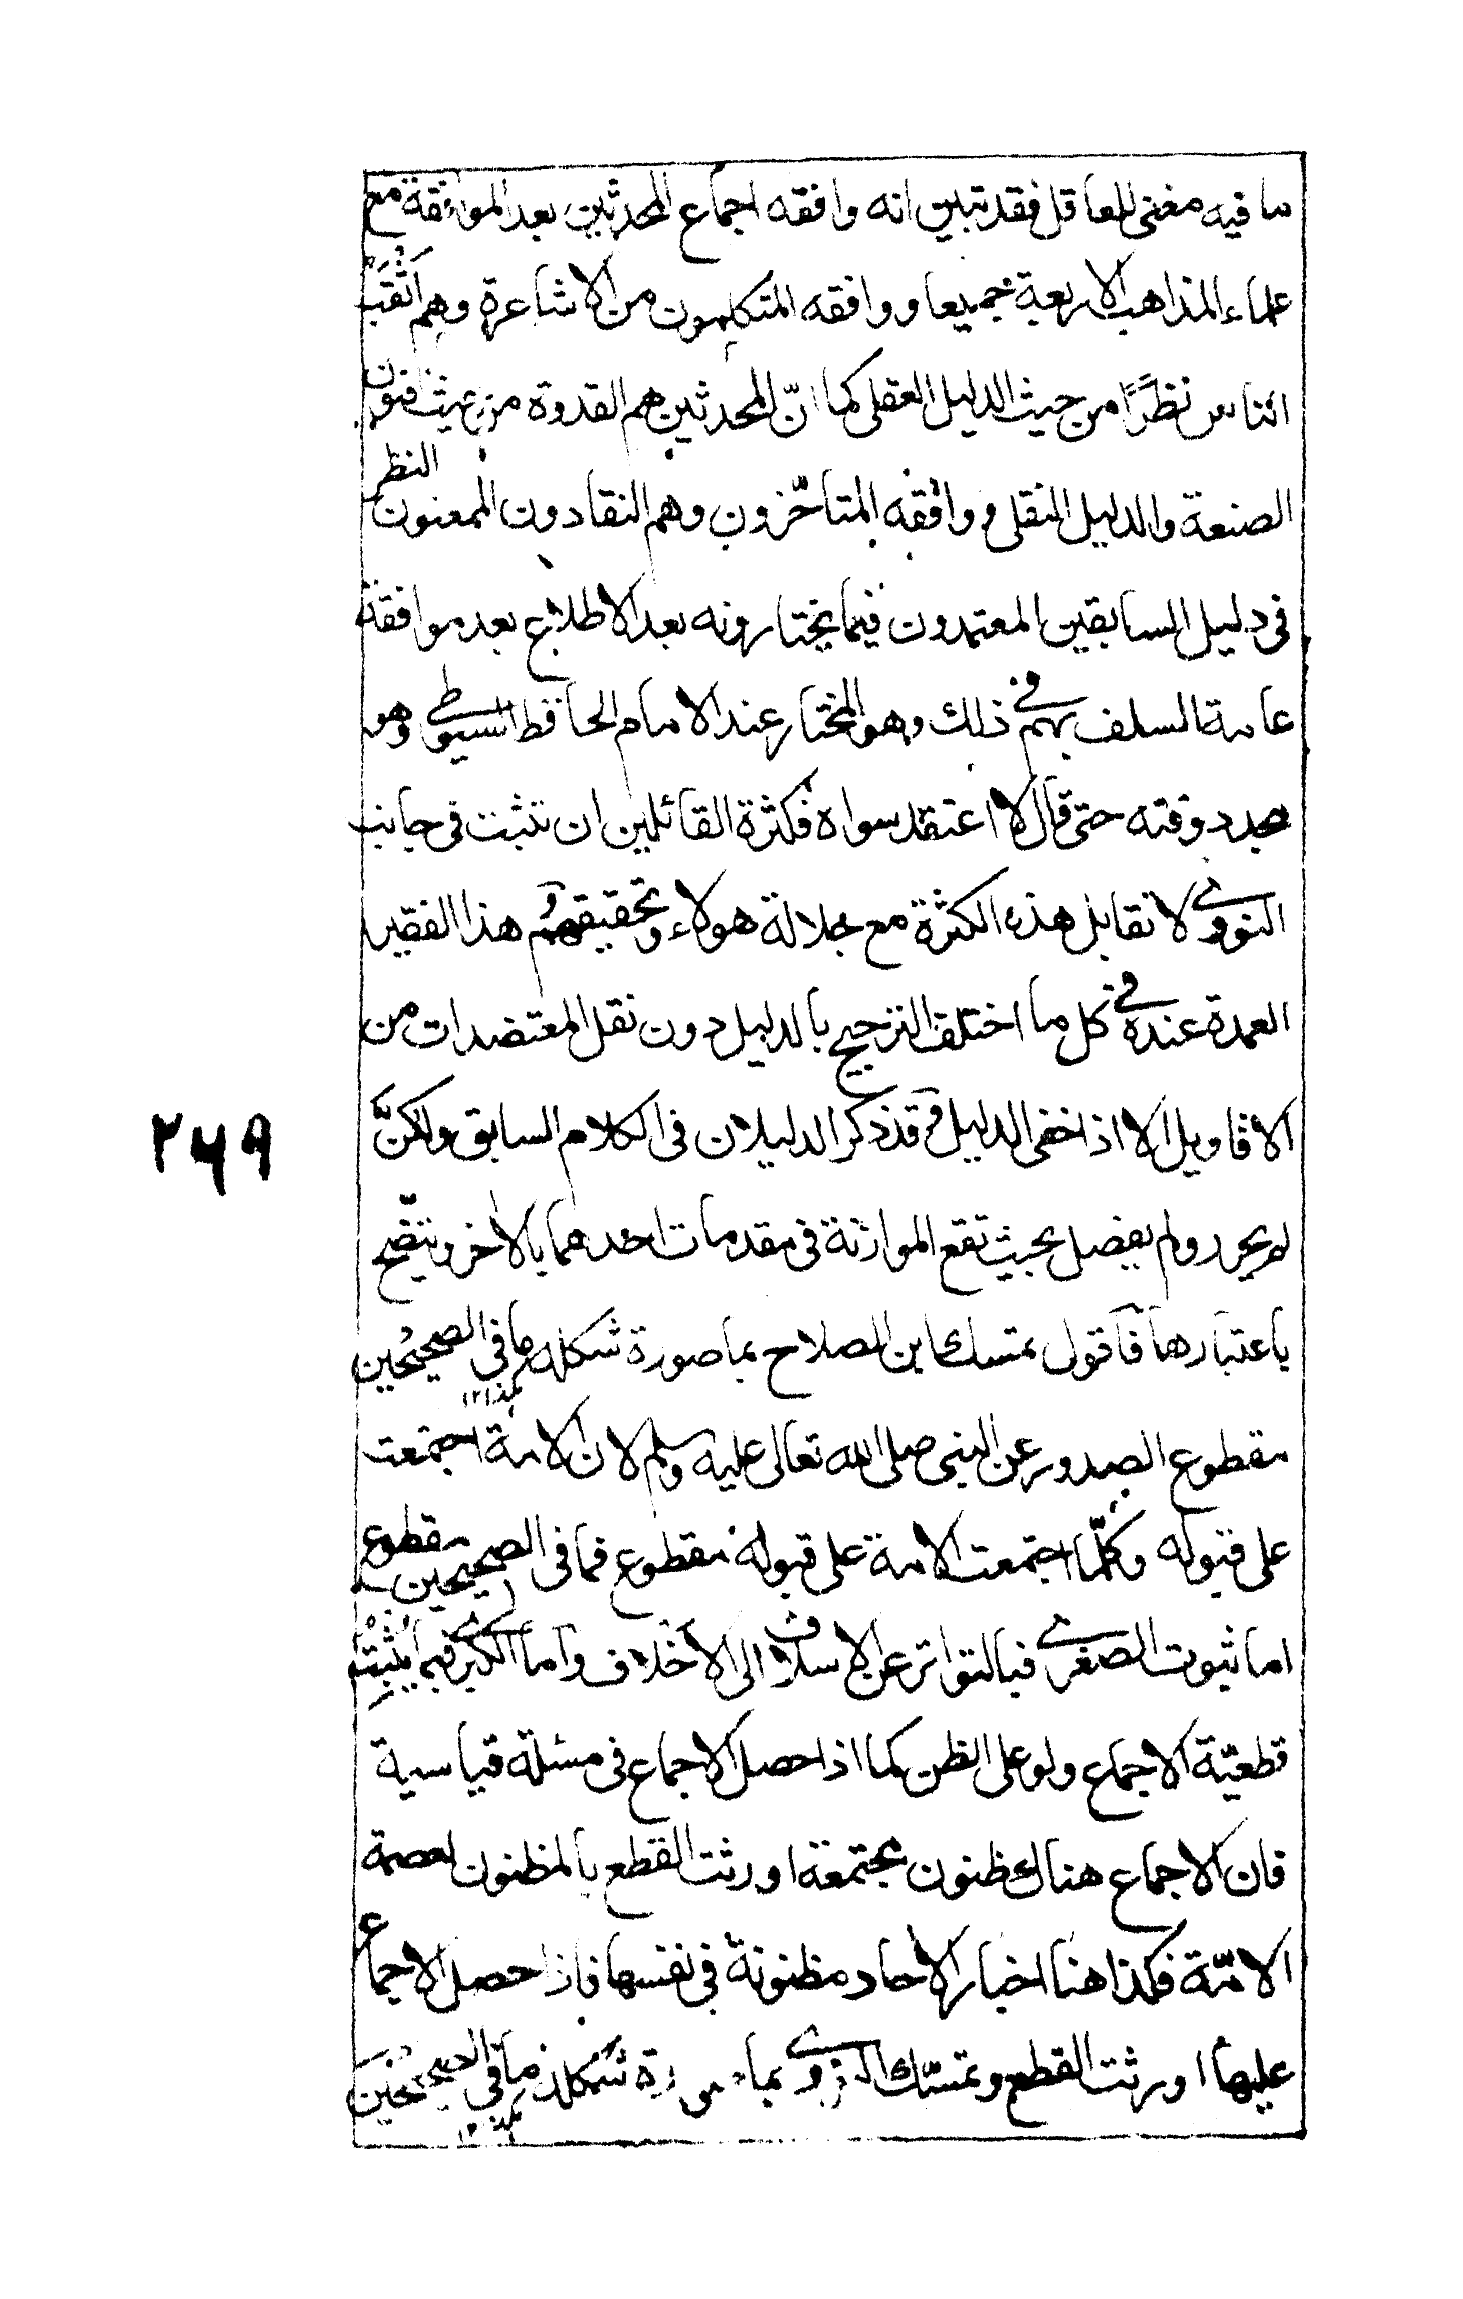 ما فيه مغنى للعاقل فقد تبين انه وافقه اجماع المحدثين بعد الموافقة مع
علماء المذاهب الاربعة جميعا ووافقه المتكلمون من الاشاعرة وهم اثقب
الناس نظرًا من حيث الدليل العقلى كما انّ المحدثين هم القدوة من حيث فنون
الصنعة والدليل النقلى ووافقه المتاخّرون وهم النقادون الممعنون النظر
فى دليل السابقين المعتمدون فيما يختارونه بعد الاطلاع بعد موافقة
عامة السلف بهم فى ذلك وهو المختار عند الامام الحافظ السيوطى وهو
مجدد وقته حتى قال لا اعتقد سواه فكثرة القائلين ان تثبت فى جانب
النووى لا تقابل هذه الكثرة مع جلالة هولاء وتحقيقهم و هذا الفقير
العمدة عنده فى كل ما اختلف الترجيح بالدليل دون نقل المعتضدات من
الاقاويل الا اذا خفى الدليل وقد ذكر الدليلان فى الكلام السابق ولكنّ
لم يحرر ولم يفصل بحيث تقع الموازنة فى مقدمات احدهما بالاخر ويتضح
باعتبارها فاقول تمسك ابن الصلاح بما صورة شكله ما فى الصحيحين
مقطوع الصدور عن النبى صلى الله تعالى عليه وسلم لان الامة اجتمعت
على قبوله وكلّما اجتمعت الامة على قبوله مقطوع فما فى الصحيحين مقطوع
اما ثبوت الصغرى فبالتواتر عن الاسلاف الى الاخلاف واما الكبرى فبما يثبته
قطعيّة الاجماع ولو على الظن كما اذا حصل الاجماع فى مسئلة قياسية
فان الاجماع هناك ظنون مجتمعة اورثت القطع بالمظنون لعصمة
الامّة فكذا هنا اخبار الاحاد مظنونة فى نفسها فاذا حصل الاجماع
عليها اورثت القطع وتمسّك النووى بما صورة شكله ما فى الصحيحين
٢٦٩